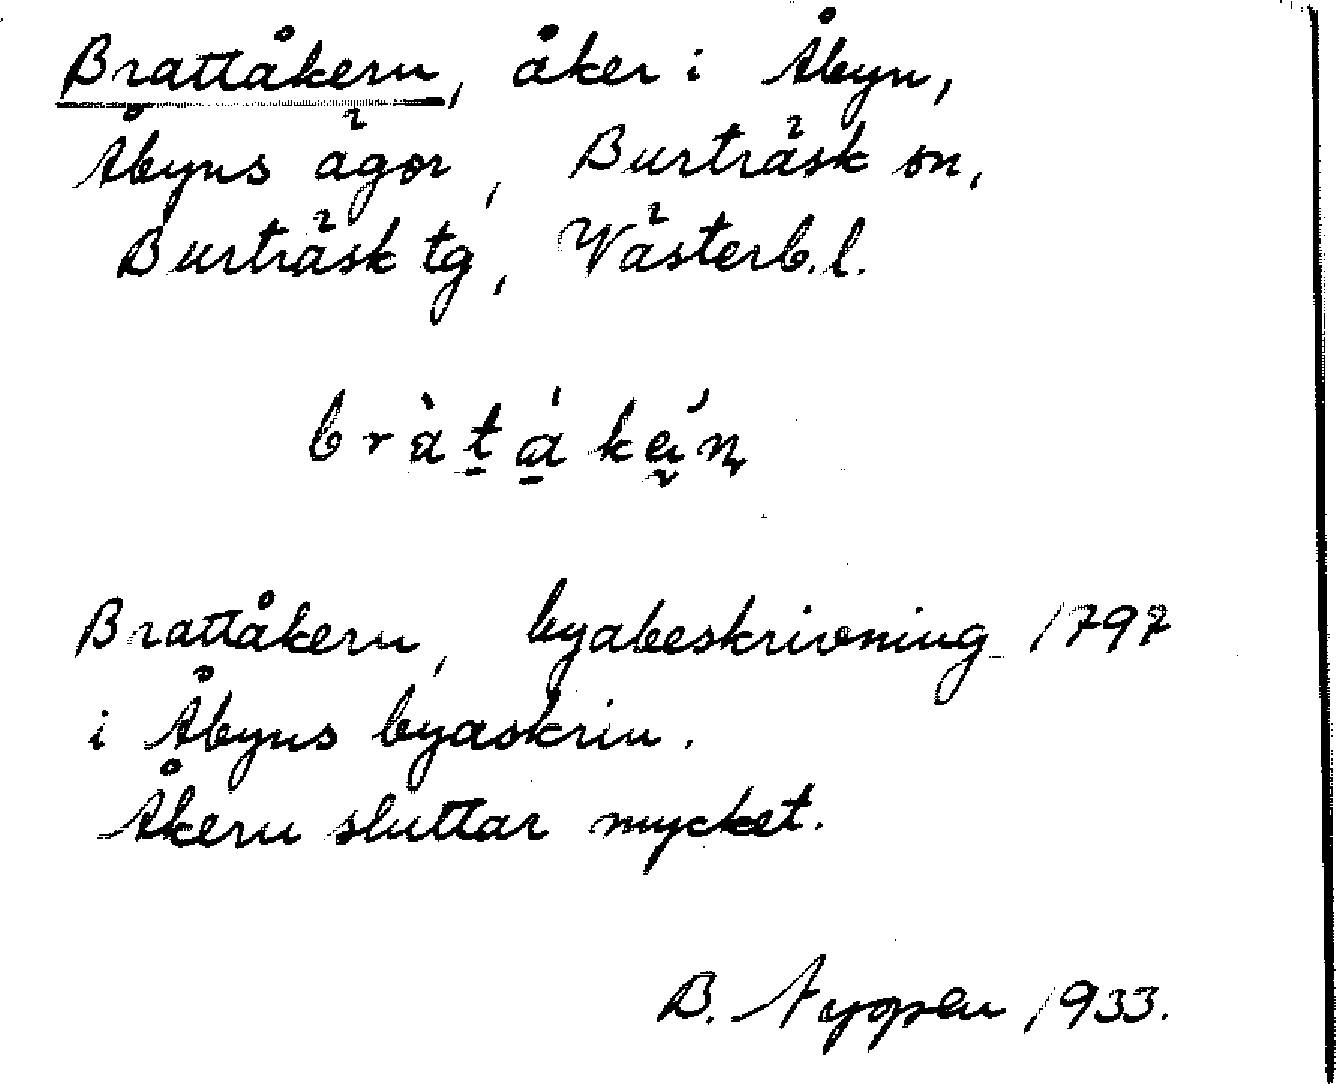 Brattåkern, åker i Åbyn,
Åbyns ägor, Burträsk sn,
Burträsk tg, Västerb.l.
Brattåkern, byabeskrivning 1797
i Åbyns byaskrin.
Åkern sluttar mycket.
B. Nygren 1933.